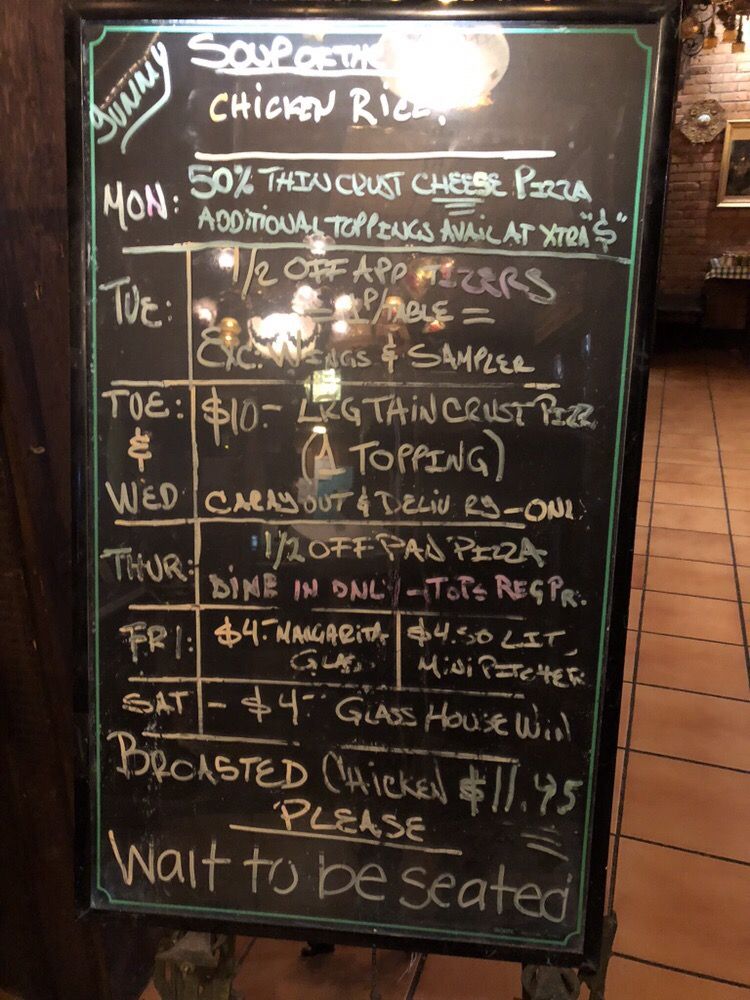 YUMMY
SOUP OF THE
CHICKEN RICE!
MON: 50% THIN CRUST CHEESE PIZZA
ADDITIONAL TOPPINGS AVAIL AT XTRA "$"
TUE: 1/2 OFF APPETIZERS
= 1P/TABLE =
EXC. WINGS & SAMPLER
TUE: $10.- LRG THIN CRUST PIZZ
& (1 TOPPING)
WED CARRYOUT & DELIV RY-ONL
THUR: 1/2 OFF PAN PIZZA
DINE IN ONLY - TOPS REG PR.
FRI: $4.- MARGARITA
GLAS
$4.50 LIT.
MINI PITCHER
SAT - $4.- GLASS HOUSE WIN
BROASTED CHICKEN $11.95
PLEASE
Wait to be seated